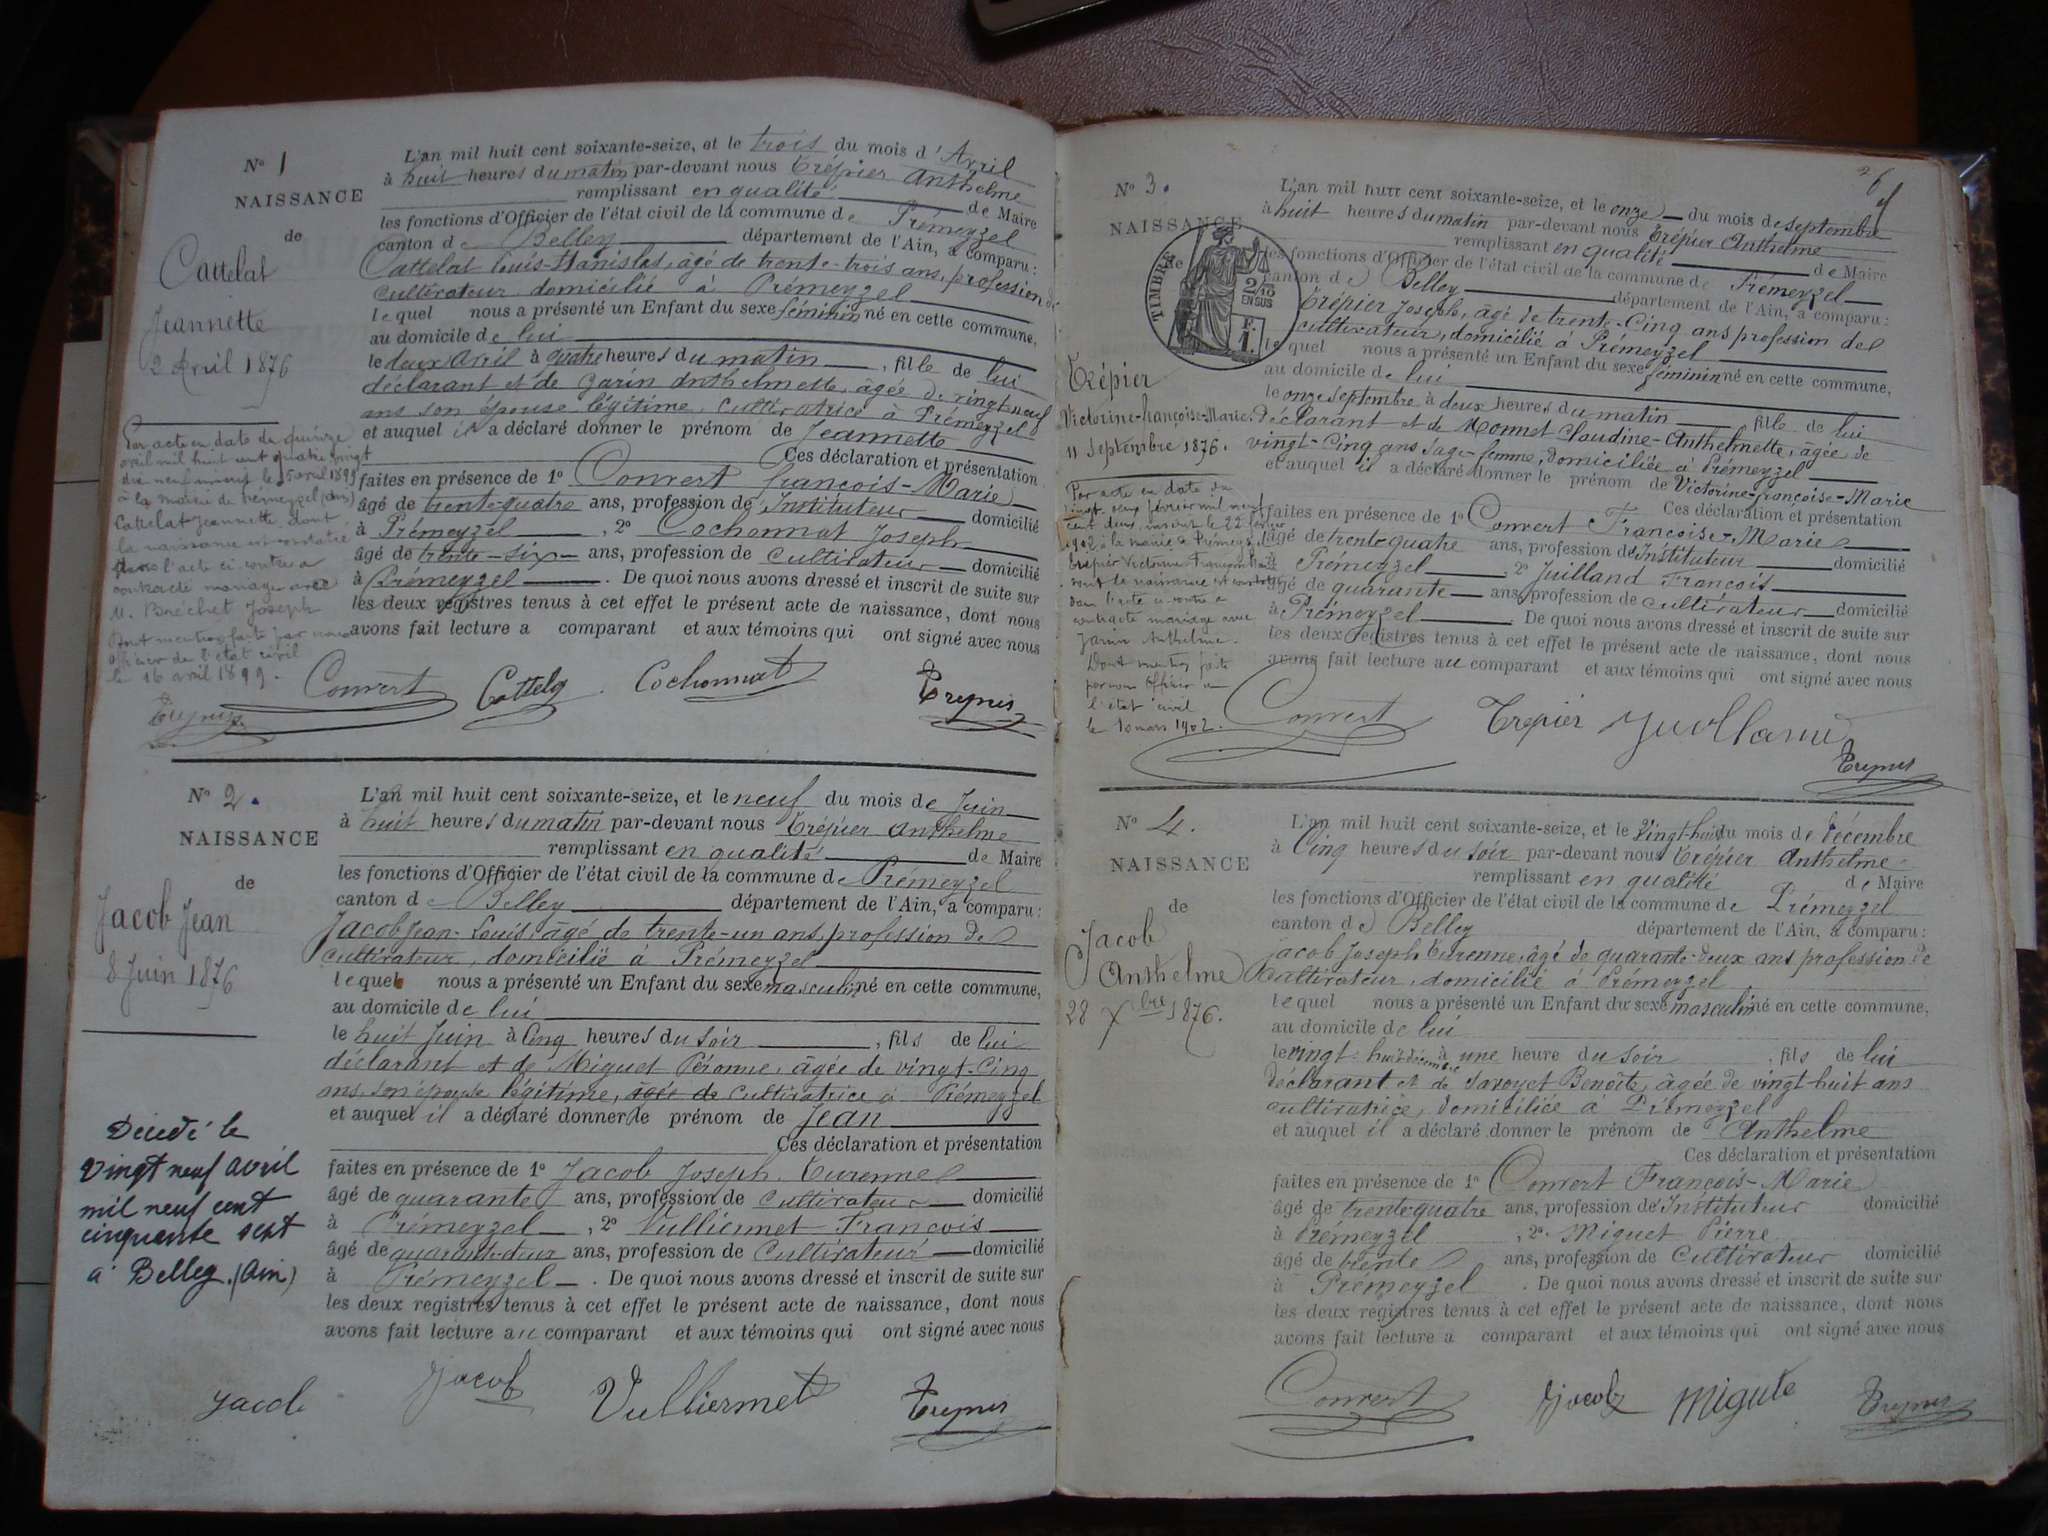 N° 1
NAISSANCE
de
Cattelat
Jeannette
2 Avril 1876
L'an mil huit cent soixante-seize, et le trois du mois d'Avril
à huit heures du matin par-devant nous Trépier Anthelme
remplissant en qualité de Maire
les fonctions d'Officier de l'état civil de la commune de Prémeyzel
canton de Belley département de l'Ain, a comparu:
Cattelat Louis-Stanislas, âgé de trente-trois ans, profession de
cultivateur domicilié à Prémeyzel
lequel nous a présenté un Enfant du sexe féminin né en cette commune,
au domicile de lui
le deux Avril à quatre heures du matin, fille de lui
déclarant et de Garin Anthelmette, âgée de vingt-neuf
ans son épouse légitime, cultivatrice à Prémeyzel
et auquel il a déclaré donner le prénom de Jeannette
Ces déclaration et présentation
faites en présence de 1° Convert François-Marie
âgé de trente-quatre ans, profession de Instituteur domicilié
à Prémeyzel, 2° Cochonnat Joseph
âgé de trente-six ans, profession de cultivateur domicilié
à Prémeyzel. De quoi nous avons dressé et inscrit de suite sur
les deux registres tenus à cet effet le présent acte de naissance, dont nous
avons fait lecture a comparant et aux témoins qui ont signé avec nous
Par acte en date du quinze
avril mil huit cent quatre vingt
dix neuf inscrit le 15 avril 1899
à la mairie de Prémeyzel (Ain)
Cattelat Jeannette, dont
la naissance est constatée
dans l'acte ci-contre a
contracté mariage avec
M. Bréchet Joseph
Dont mention faite par nous
officier de l'état civil
le 16 avril 1899.
Convert Cattelat Cochonnat
N° 2.
NAISSANCE
de
Jacob Jean
8 Juin 1876
L'an mil huit cent soixante-seize, et le neuf du mois de Juin
à huit heures du matin par-devant nous Trépier Anthelme
remplissant en qualité de Maire
les fonctions d'Officier de l'état civil de la commune de Prémeyzel
canton de Belley département de l'Ain, a comparu:
Jacob Jean-Louis, âgé de trente-un ans, profession de
cultivateur, domicilié à Prémeyzel
lequel nous a présenté un Enfant du sexe masculin né en cette commune,
au domicile de lui
le huit Juin à Cinq heures du soir, fils de lui
déclarant et de Miguet Péronne, âgée de vingt-Cinq
ans, son épouse légitime, âgée de Cultivatrice à Prémeyzel
et auquel il a déclaré donner le prénom de Jean
Ces déclaration et présentation
faites en présence de 1° Jacob Joseph Turenne
âgé de quarante ans, profession de Cultivateur domicilié
à Prémeyzel, 2° Vulliermet François
âgé de quarante-deux ans, profession de Cultivateur domicilié
à Prémeyzel. De quoi nous avons dressé et inscrit de suite sur
les deux registres tenus à cet effet le présent acte de naissance, dont nous
avons fait lecture au comparant et aux témoins qui ont signé avec nous
Décédé le
Vingt neuf avril
mil neuf cent
cinquante sept
à Belley. (Ain)
Jacob Jacob Vulliermet
N° 3.
NAISSANCE
de
TIMBRE
2/10
EN SUS
F.
1.
Trépier
Victorine-françoise-Marie
11 Septembre 1876.
L'an mil huit cent soixante-seize, et le onze du mois de septembre
à huit heures du matin par-devant nous Trépier Anthelme
remplissant en qualité de Maire
les fonctions d'Officier de l'état civil de la commune de Prémeyzel
canton de Belley département de l'Ain, a comparu:
Trépier Joseph, âgé de trente-Cinq ans profession de
cultivateur, domicilié à Prémeyzel
lequel nous a présenté un Enfant du sexe féminin né en cette commune,
au domicile de lui
le onze septembre à deux heures du matin fille de lui
déclarant et de Monnet Claudine-Anthelmette, âgée de
vingt-Cinq ans sage-femme, domiciliée à Prémeyzel
et auquel il a déclaré donner le prénom de Victorine-françoise-Marie
Ces déclaration et présentation
faites en présence de 1° Convert François-Marie
âgé de trente quatre ans, profession de Instituteur domicilié
à Prémeyzel, 2° Juilland François
âgé de quarante ans, profession de cultivateur domicilié
à Prémeyzel. De quoi nous avons dressé et inscrit de suite sur
les deux registres tenus à cet effet le présent acte de naissance, dont nous
avons fait lecture au comparant et aux témoins qui ont signé avec nous
Par acte en date du
vingt deux février mil neuf
cent deux, inscrit le 22 février
1902 à la mairie de Prémeyzel
Trépier Victorine Françoise Marie
dont la naissance est constatée
dans l'acte ci-contre a
contracté mariage avec
Janin Anthelme.
Dont mention faite
par nous Officier de
l'état civil
le 10 mars 1902.
Convert Trépier Juilland
N° 4.
NAISSANCE
de
Jacob
Anthelme
28 Xbre 1876.
L'an mil huit cent soixante-seize, et le Vingt-huit du mois de Décembre
à Cinq heures du soir par-devant nous Trépier Anthelme
remplissant en qualité de Maire
les fonctions d'Officier de l'état civil de la commune de Prémeyzel
canton de Belley département de l'Ain, a comparu:
Jacob Joseph Turenne, âgé de quarante-deux ans profession de
Cultivateur, domicilié à Prémeyzel
lequel nous a présenté un Enfant du sexe masculin né en cette commune,
au domicile de lui
le vingt-huit décembre à une heure du soir, fils de lui
déclarant et de Savoyet Benoîte, âgée de vingt huit ans
cultivatrice, domiciliée à Prémeyzel
et auquel il a déclaré donner le prénom de Anthelme
Ces déclaration et présentation
faites en présence de 1° Convert François-Marie
âgé de trente-quatre ans, profession d'Instituteur domicilié
à Prémeyzel, 2° Miguet Pierre
âgé de trente ans, profession de Cultivateur domicilié
à Prémeyzel. De quoi nous avons dressé et inscrit de suite sur
les deux registres tenus à cet effet le présent acte de naissance, dont nous
avons fait lecture a comparant et aux témoins qui ont signé avec nous
Convert Jacob Migute